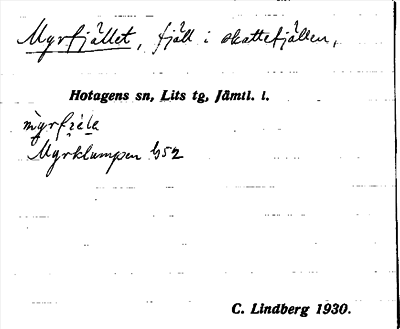 Myrfjället, fjäll i skattefjällen,
Hotagens sn, Lits tg, Jämtl. l.
Myrklumpen 
C. Lindberg 1930.